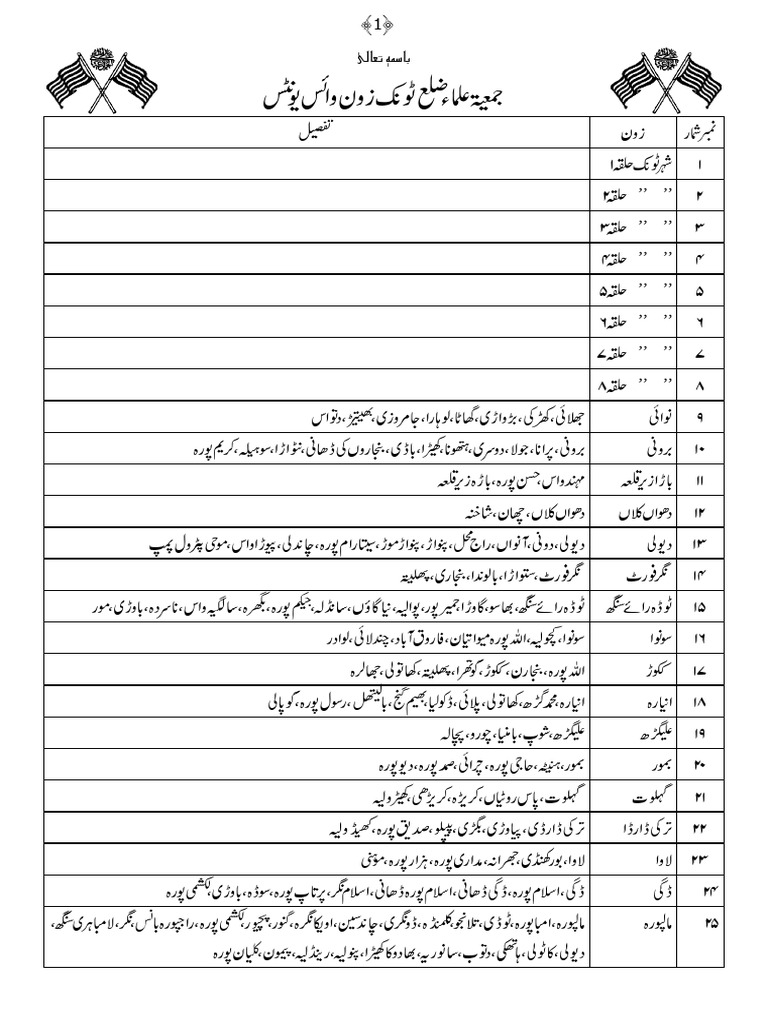 ﴿1﴾
باسمہٖ تعالیٰ
جمعیۃ علماء ضلع ٹونک زون وائس یونٹس
نمبر شمار زون تفصیل
۱ شہر ٹونک حلقہ ۱
۲ ” ” حلقہ ۲
۳ ” ” حلقہ ۳
۴ ” ” حلقہ ۴
۵ ” ” حلقہ ۵
۶ ” ” حلقہ ۶
۷ ” ” حلقہ ۷
۸ ” ” حلقہ ۸
۹ نوائی جھلائی، کھڑکی، بڑواڑی، گھاٹا، لوہارا، جامروزی، بھیتیڑ، دتواس
۱۰ برونی برونی، پرانا، جولا، دوسری، ہتھونا، کھیڑا، باڈی، بنجاروں کی ڈھانی، نٹواڑا، سوہیلہ، کریم پورہ
۱۱ باڑا زیر قلعہ مہندواس، حسن پورہ، باڑہ زیر قلعہ
۱۲ دھواں کلاں دھواں کلاں، چھان، شاخنہ
۱۳ دیولی دیولی، دونی، آنواں، راج محل، پنواڑ، پنواڑ موڑ، سیتارام پورہ، چاندلی، پیوڑاواس، موجی پٹرول پمپ
۱۴ نگرفورٹ نگرفورٹ، ستواڑا، بالوندا، بنجاری، پھلیتہ
۱۵ ٹوڈہ رائے سنگھ ٹوڈہ رائے سنگھ، بھاسو، گاوڑا، جمیرپور، پوالیہ، نیا گاؤں، سانڈلہ، جیکم پورہ، بگھرہ، سالگیہ واس، ناسردہ، باوڑی، مور
۱۶ سونوا سونوا، کچولیہ، اللہ پورہ میواتیان، فاروق آباد، چندلائی، لوادر
۱۷ ککوڑ اللہ پورہ، بنجارن، ککوڑ، کوتھرا، پھلیتہ، کھاتولی، جھالرہ
۱۸ انیارہ انیارہ، محمد گڑھ، کھاتولی، پلائی، ڈکولیا، بھیم گنج، بالیتھل، رسول پورہ، گوپالی
۱۹ علیگڑھ علیگڑھ، شوپ، بامنیا، چورو، پچالہ
۲۰ بمور بمور، ہنیٹہ، حاجی پورہ، چرائی، صمد پورہ، دیو پورہ
۲۱ گہلوت گہلوت، پاس روٹیاں، کریڑہ، کریڑھی، کھیڑولیہ
۲۲ ترکی ڈارڈا ترکی ڈارڈی، پیاوڑی، بگڑی، پیپلو، صدیق پورہ، کھیڈولیہ
۲۳ لاوا لاوا، بورکھنڈی، جھرانہ، مداری پورہ، ہزار پورہ، موہنی
۲۴ ڈگی ڈگی، اسلام پورہ، ڈگی ڈھانی، اسلام پورہ ڈھانی، اسلام نگر، پرتاپ پورہ، سوڈہ، باوڑی، لکشمی پورہ
۲۵ مالپورہ مالپورہ، امباپورہ، ٹوڈی، تلانجو، کلمنڈہ، ڈونگری، چاندسین، اویکانگرہ، گنور، پچیور، لکشمی پورہ، راجپورہ بانس، نگر، لامباہری سنگھ،
دیولی، کاٹولی، ہاتھکی، دتوب، سانوریہ، بھادوکا کھیڑا، پنولیہ، رینڈلیہ، پیمون، کلیان پورہ